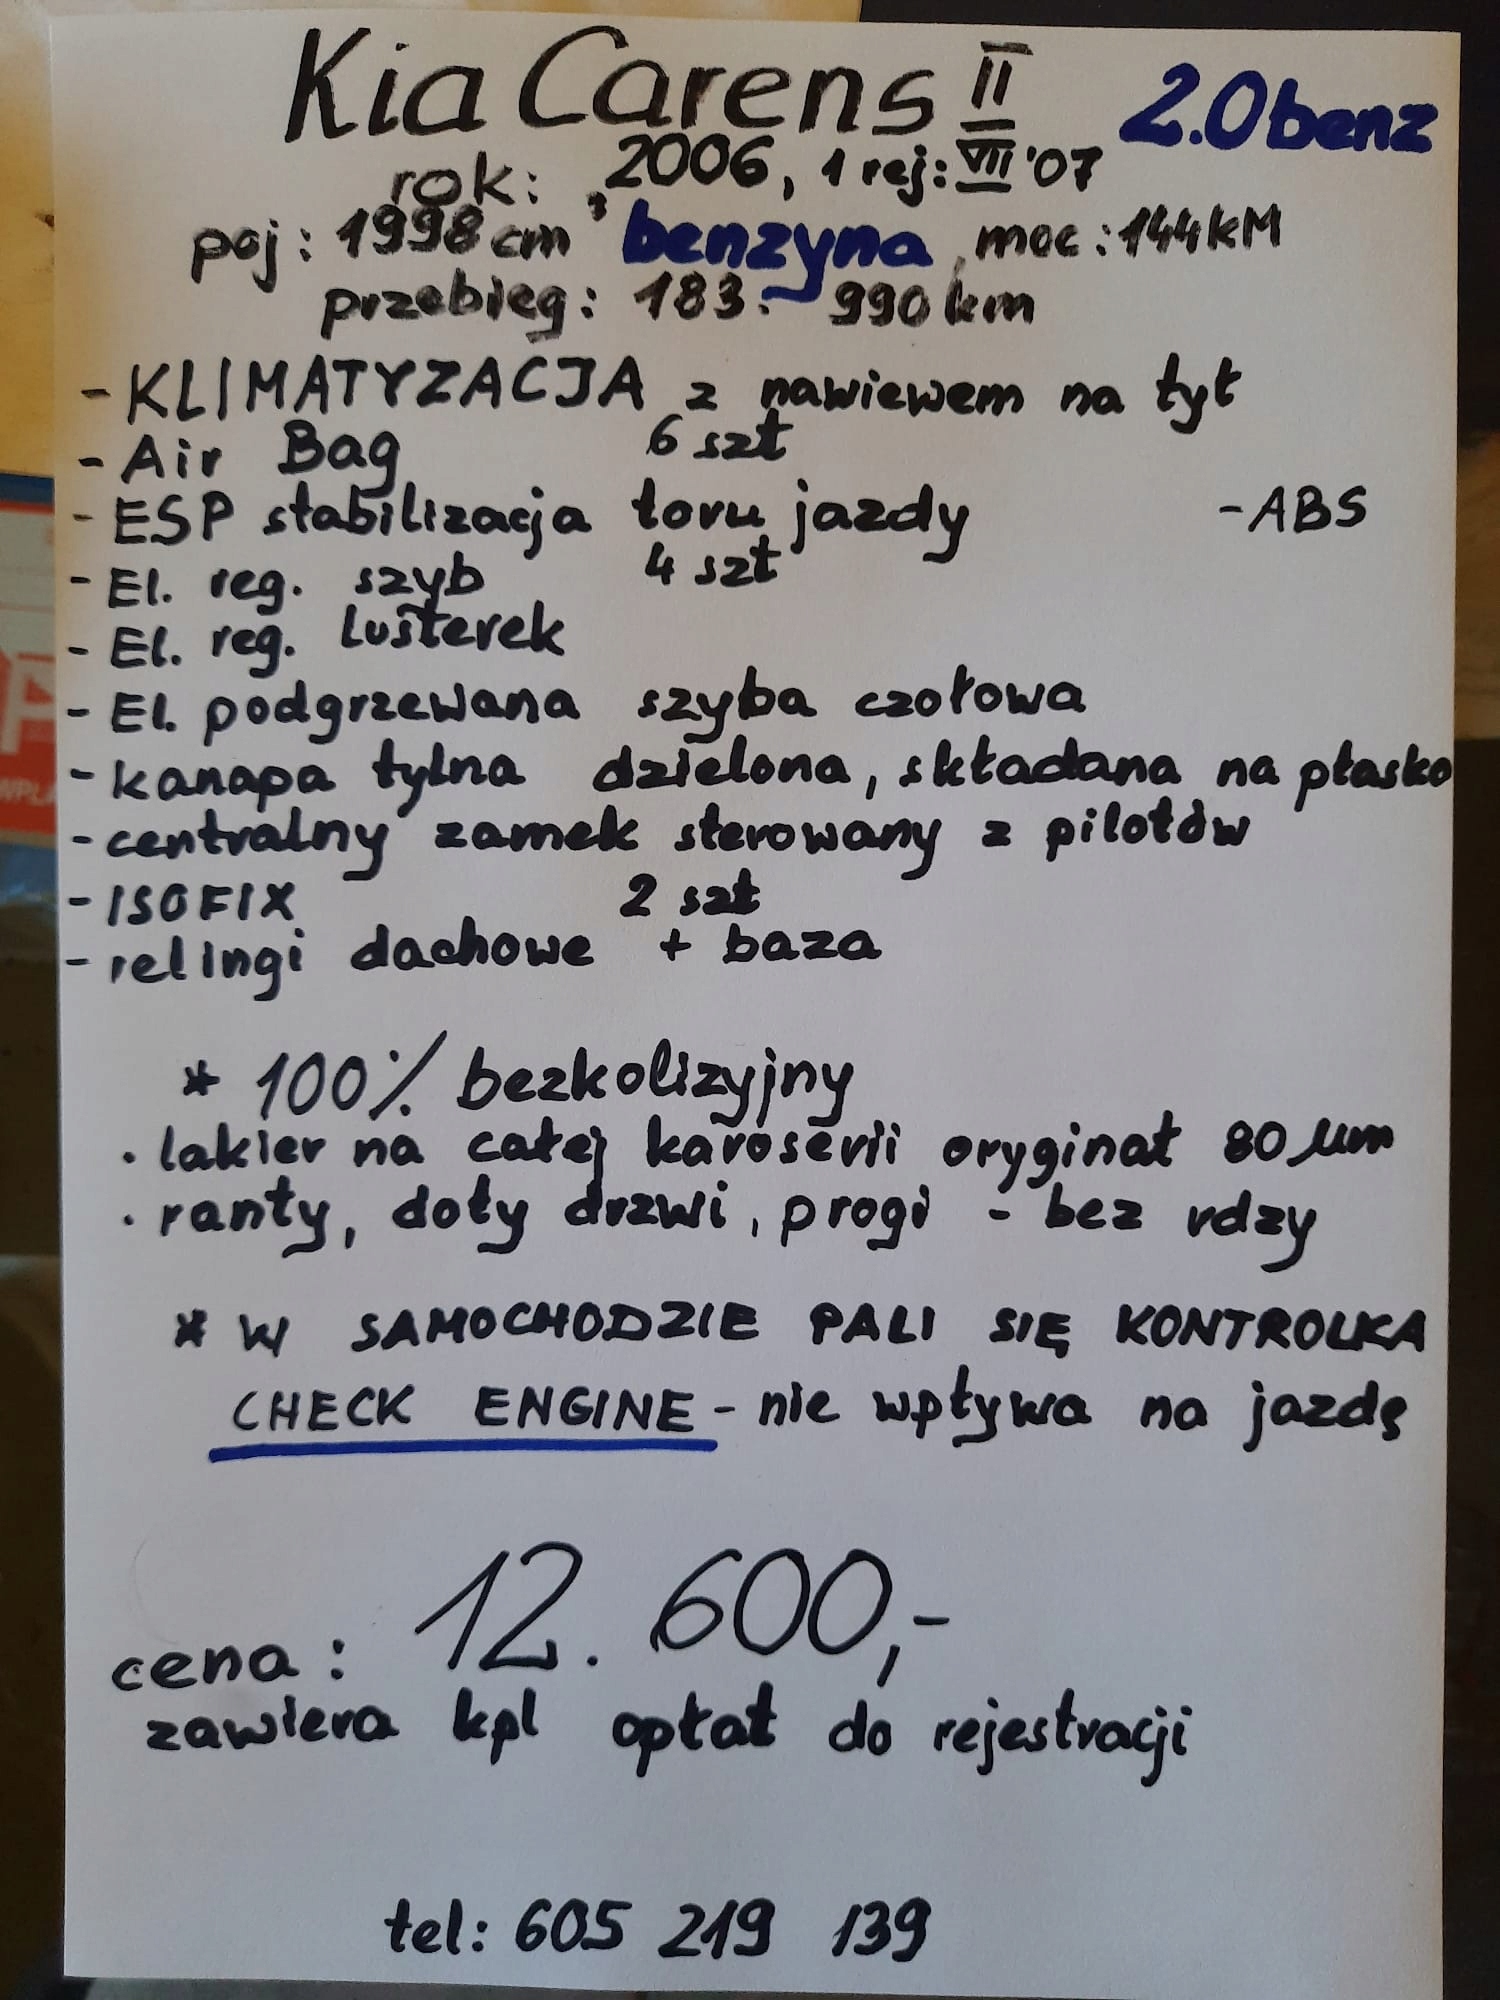 Kia Carens II 2.0 benz
rok: 2006, 1 rej: VII '07
poj: 1998 cm³ benzyna, moc: 144 kM
przebieg: 183. 990 km
- KLIMATYZACJA z nawiewem na tył
- Air Bag 6 szt
- ESP stabilizacja toru jazdy - ABS
- El. reg. szyb 4 szt
- El. reg. lusterek
- El. podgrzewana szyba czołowa
- kanapa tylna dzielona, składana na płasko
- centralny zamek sterowany z pilotów
- ISOFIX 2 szt
- relingi dachowe + baza
* 100% bezkolizyjny
• lakier na całej karoserii oryginał 80 µm
• ranty, doły drzwi, progi - bez rdzy
* W SAMOCHODZIE PALI SIĘ KONTROLKA
CHECK ENGINE - nie wpływa na jazdę
cena: 12.600,-
zawiera kpl opłat do rejestracji
tel: 605 219 139